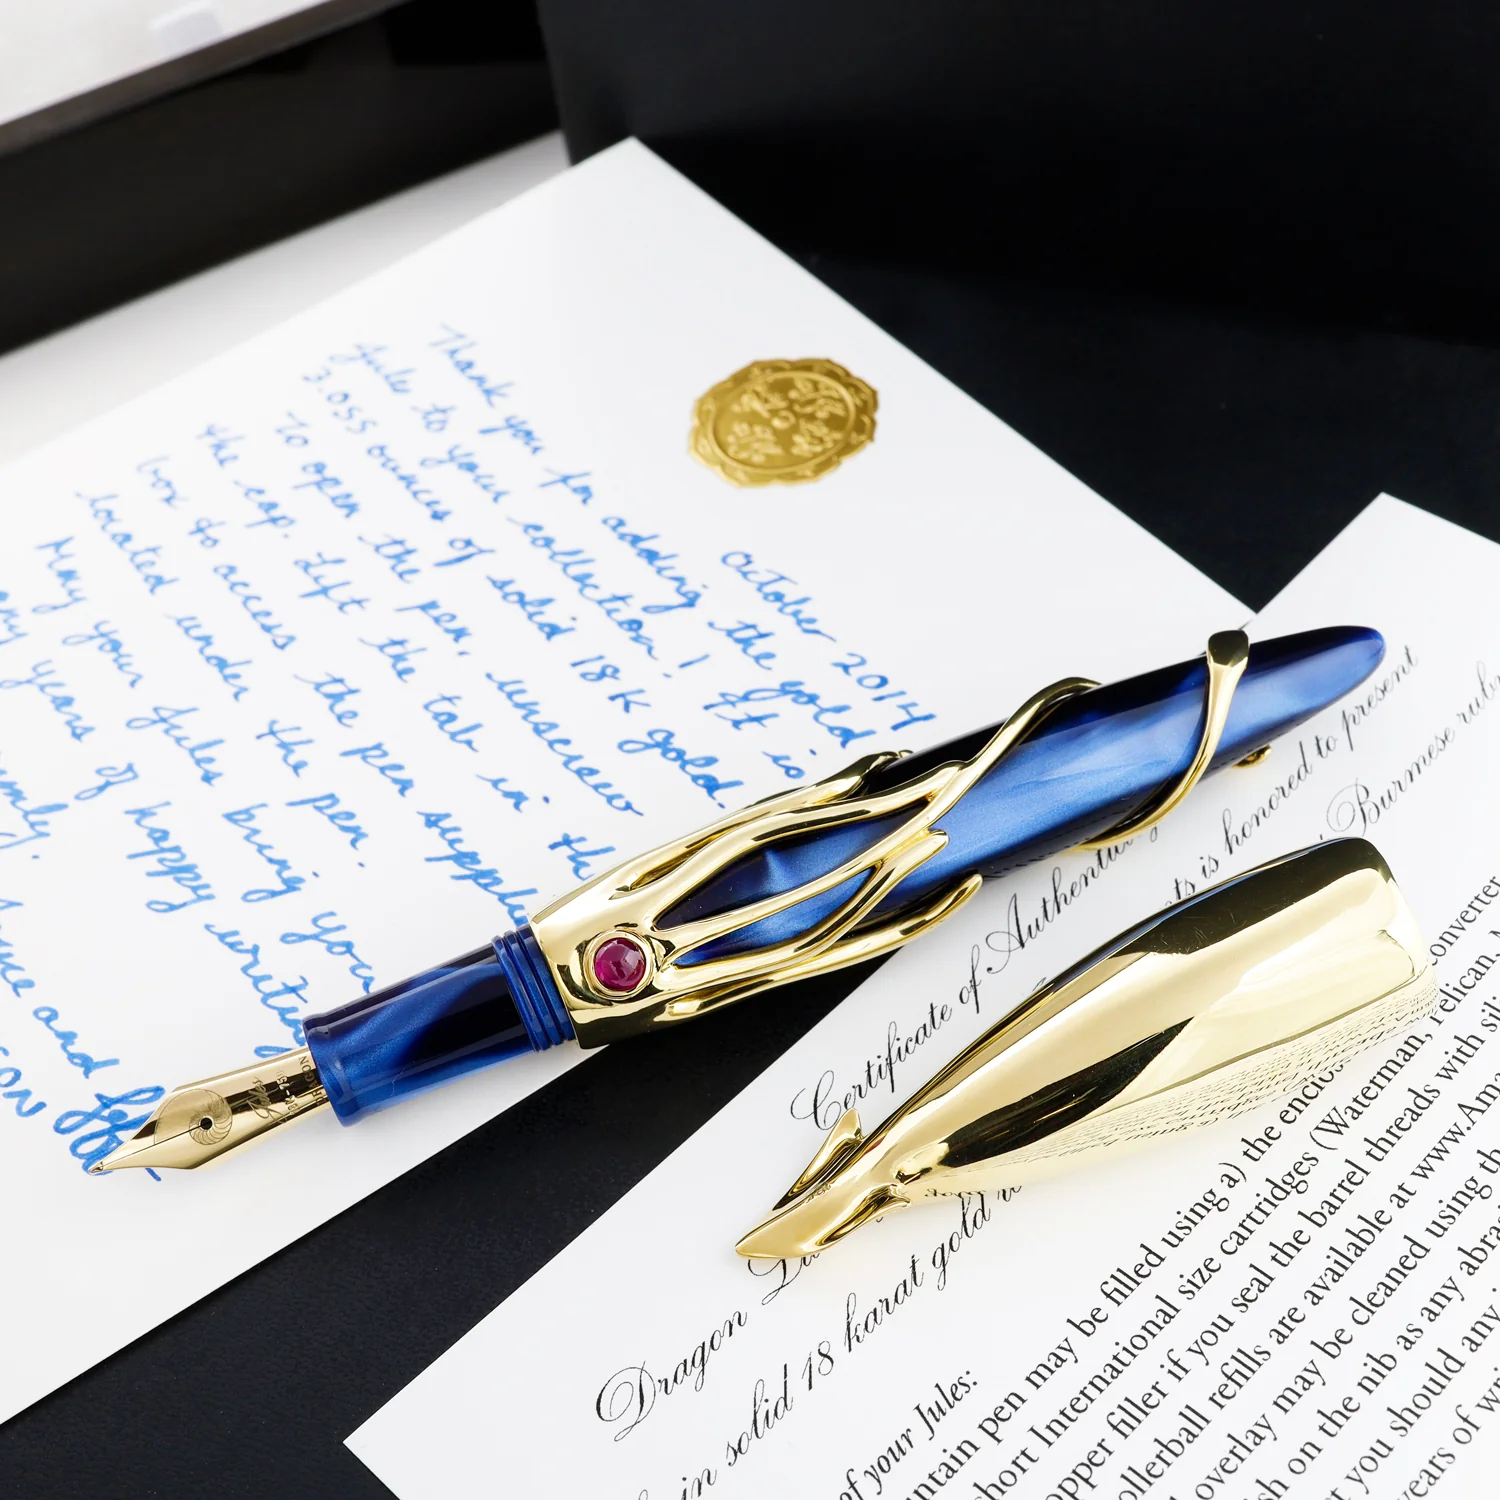 October 2014
Thank you for adding the gold
Jules to your collection! It is
3.055 ounces of solid 18K gold.
To open the pen, unscrew
the cap. Lift the tab in th
box to access the pen supplie
located under the pen.
May your Jules bring you
any years of happy writing
and
Certificate of Authentic
ts is honored to present
Burmese rub
Dragon
in solid 18 karat gold
of your Jules:
untain pen may be filled using a) the enclo
converter
short International size cartridges (Waterman,
elican
opper filler if you seal the barrel threads with sil
ollerball refills are available at www.Ama
overlay may be cleaned using th
sh on the nib as any abra
t you should any
ears of w
750